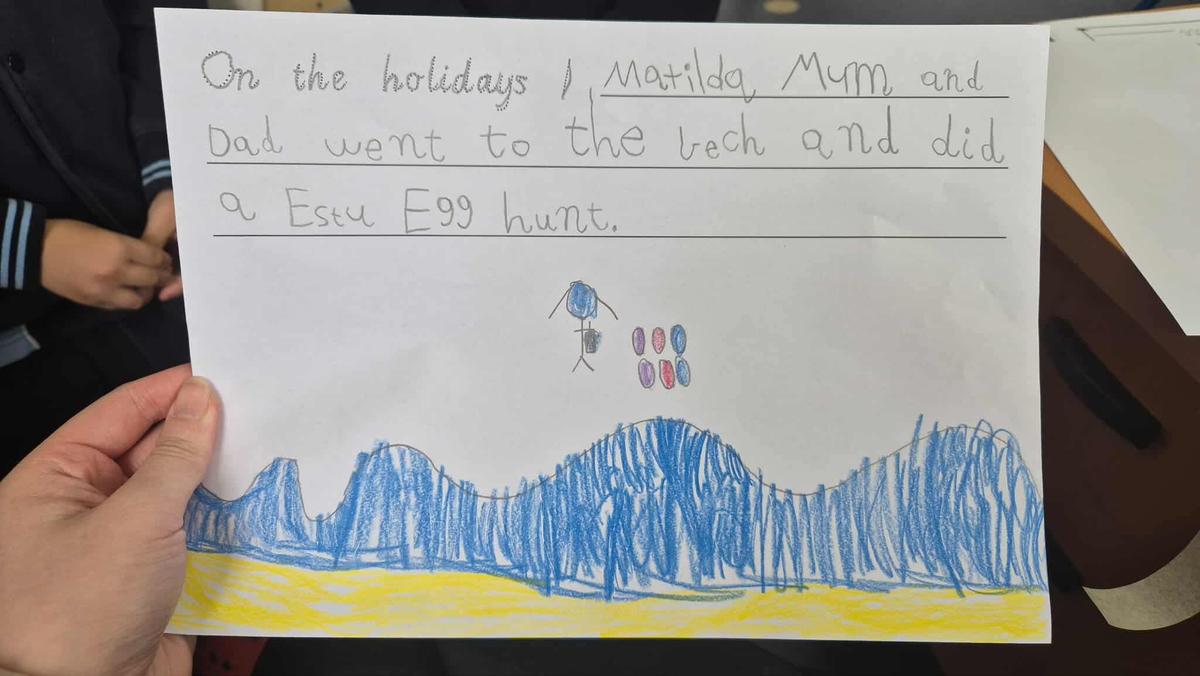 On the holidays I Matilda Mum and
Dad went to the bech and did
a Estu Egg hunt.